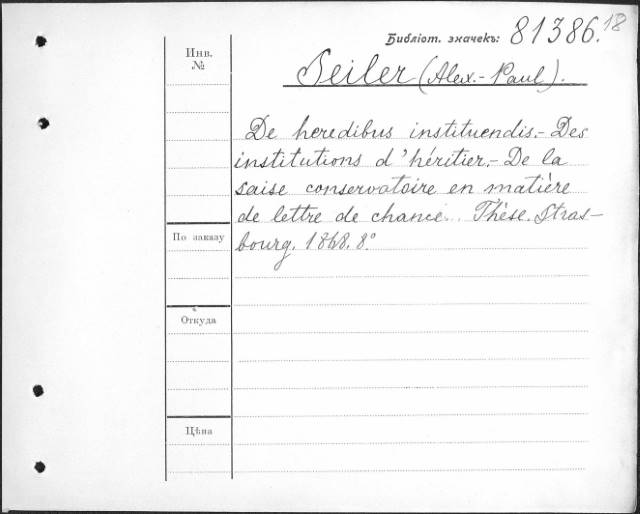 Библіот. значекъ: 81386. 18
Инв.
№
Seiler (Alex.-Paul).
De heredibus instituendis.- Des
institutions d'héritier.- De la
saise conservatoire en matière
de lettre de chance. Thèse. Stras-
По заказу
bourg. 1868. 8°
Откуда
Цѣна